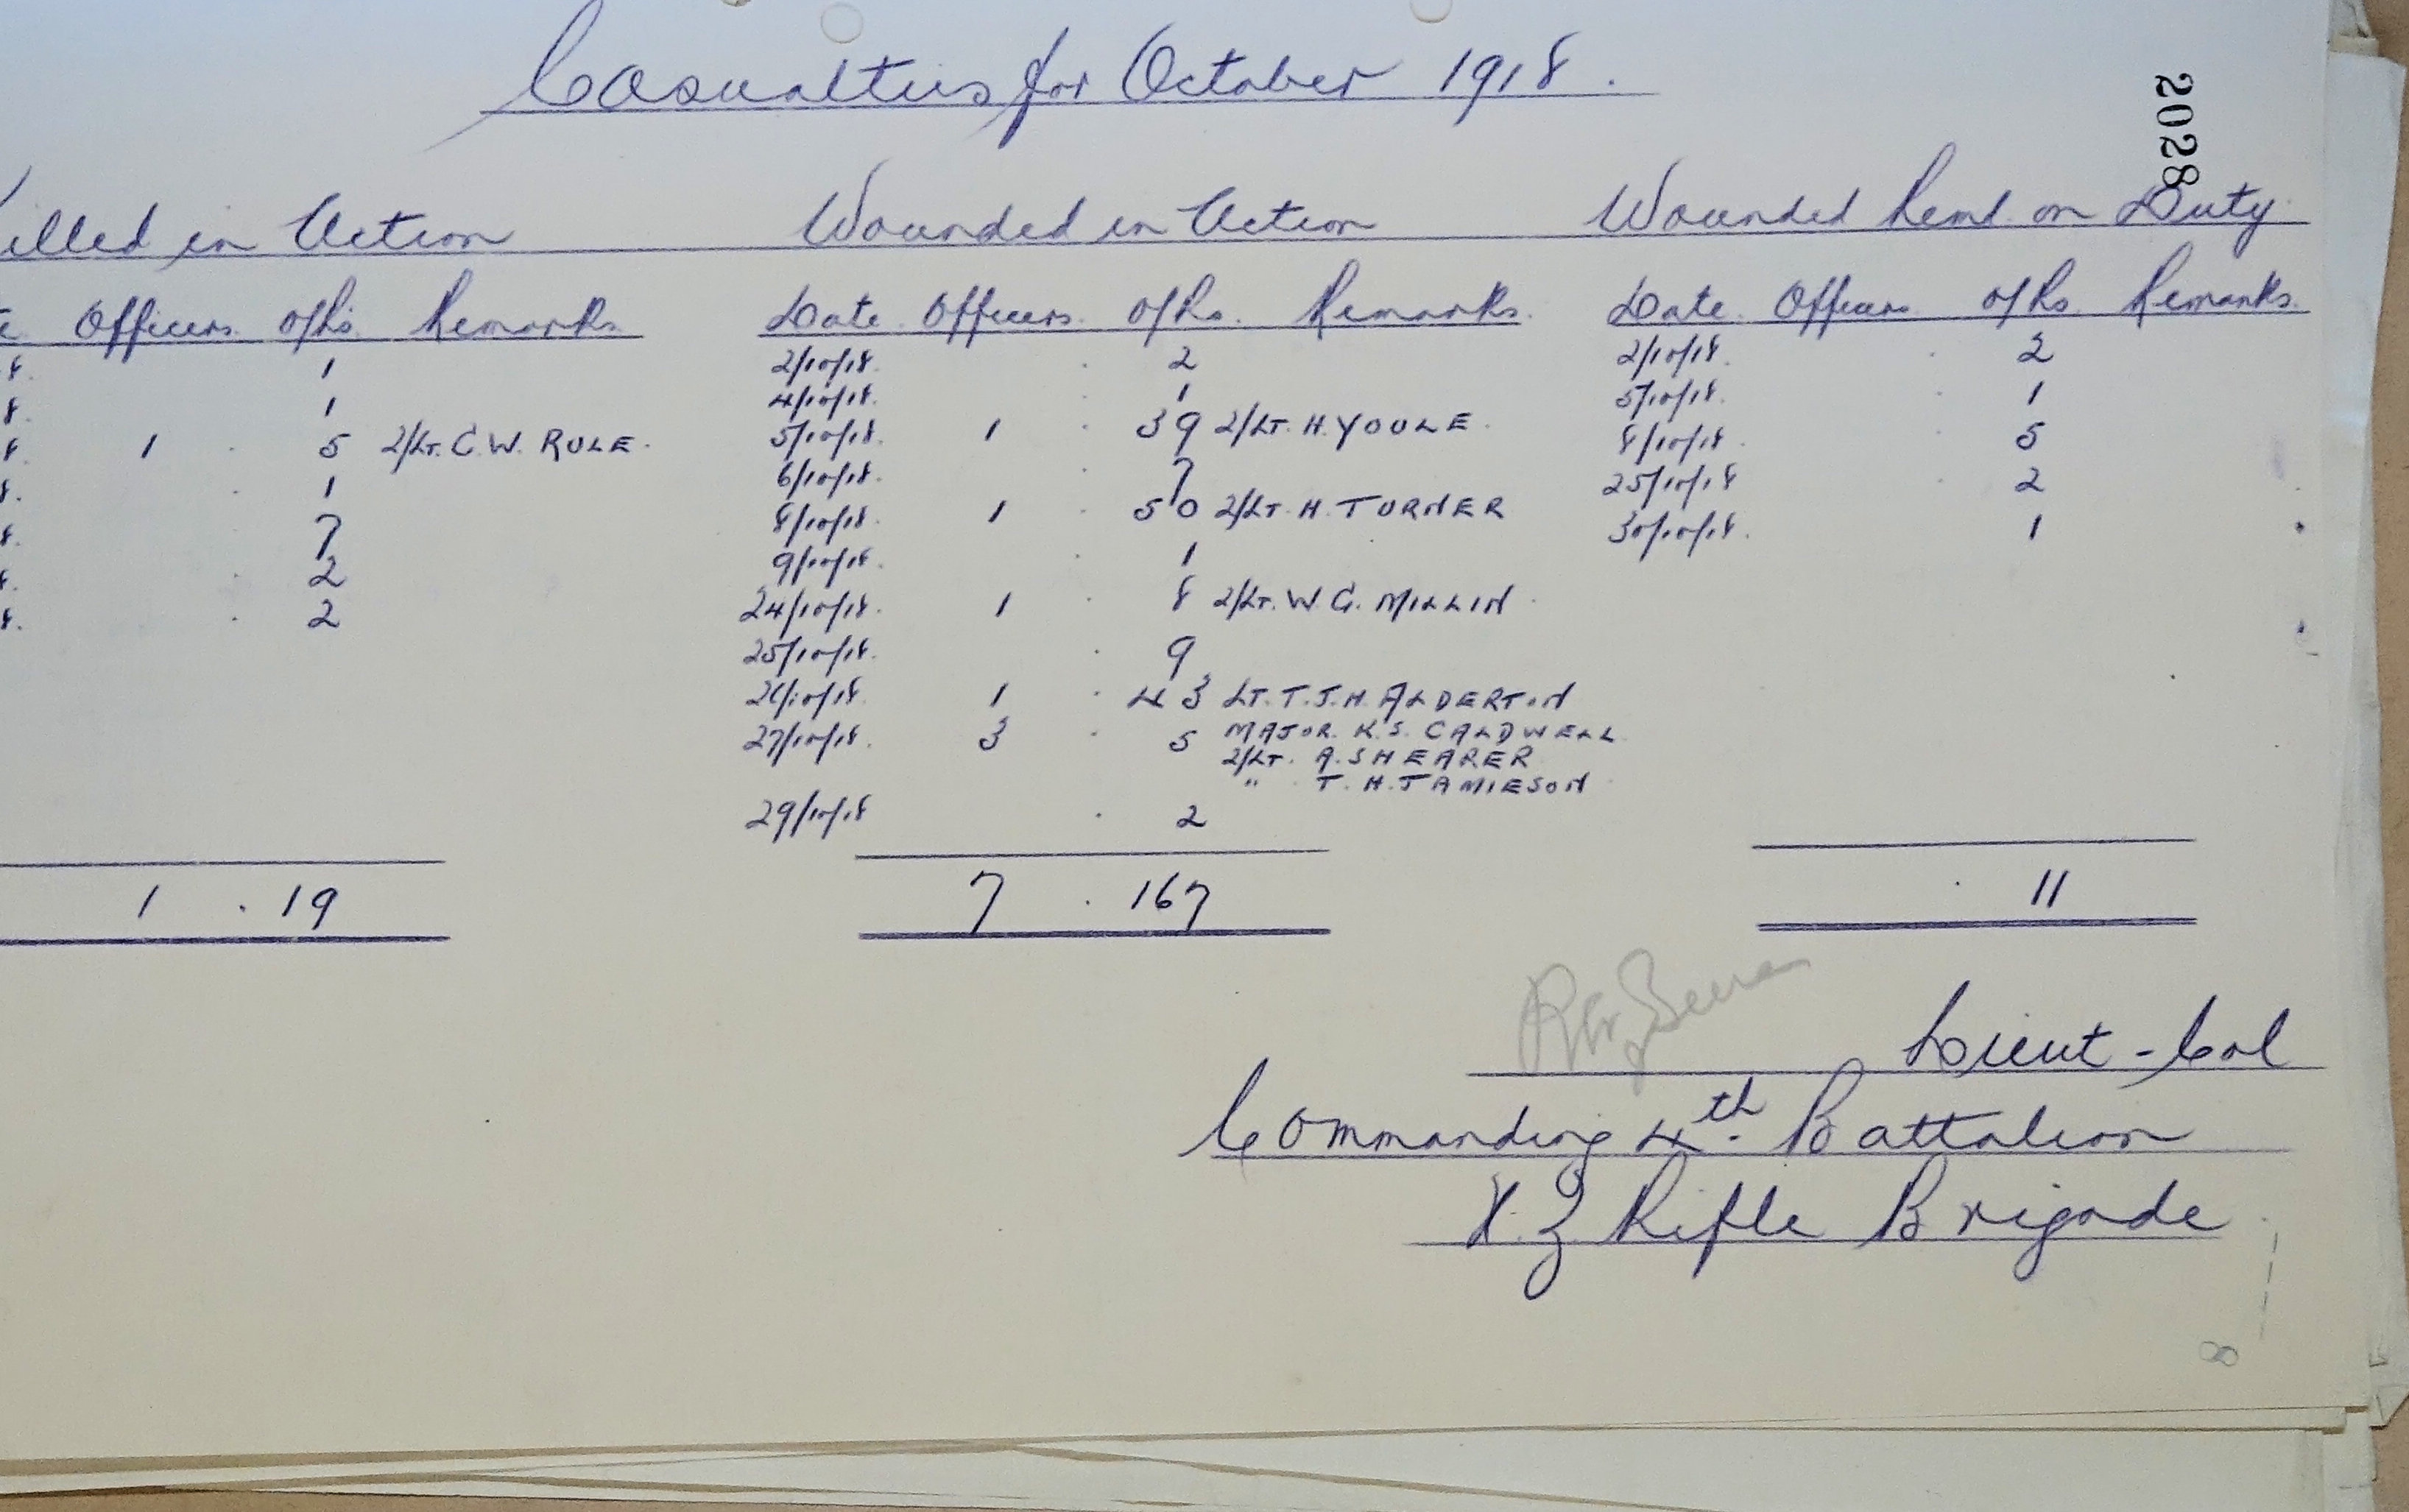 Casualties for October 1918.
2028
Killed in Action Wounded in Action Wounded Remd. on Duty
Officers. O/Rs. Remarks. Date. Officers. O/Rs. Remarks. Date. Officers. O/Rs. Remarks.
8. 1 2/10/18. 2 2/10/18. 2
8. 1 4/10/18. 1 5/10/18. 1
8. 1 5 2/LT. C. W. RULE. 5/10/18. 1 39 2/LT. H. YOULE. 8/10/18. 5
8. 1 6/10/18. 7 25/10/18 2
8. 7 8/10/18. 1 50 2/LT. H. TURNER 30/10/18. 1
8. 2 9/10/18. 1
8. 2 24/10/18. 1 8 2/LT. W. G. MILLIN.
25/10/18. 9
26/10/18. 1 43 LT. T. J. H. ALDERTON
27/10/18. 3 5 MAJOR. K. S. CALDWELL
2/LT. A. SHEARER
" T. H. JAMIESON
29/10/18 2
1 . 19 7 . 167 . 11
Lieut-Col
Commanding 4th. Battalion
N.Z Rifle Brigade.
8